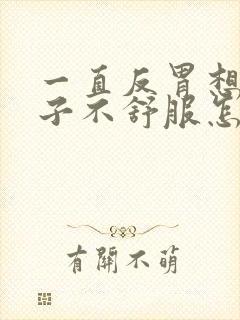 一直反胃想
子不舒服怎
有關不萌